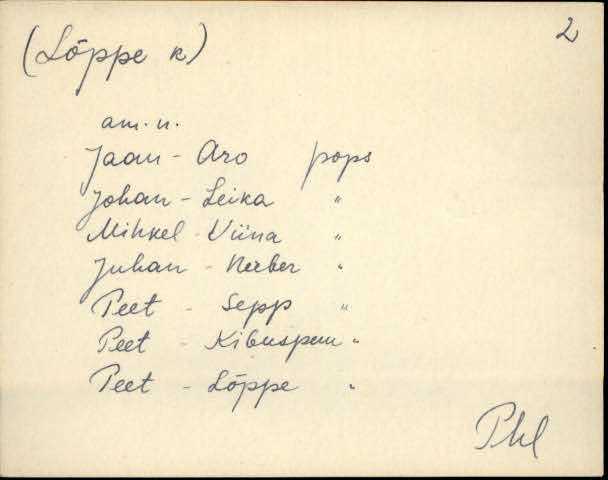 (Lõppe k) 2
am. n.
Jaan - Aro pops
Johan - Leika "
Mihkel - Viina "
Juhan - Neeber "
Peet - Sepp "
Peet - Kibuspuu "
Peet - Lõppe "
Phl